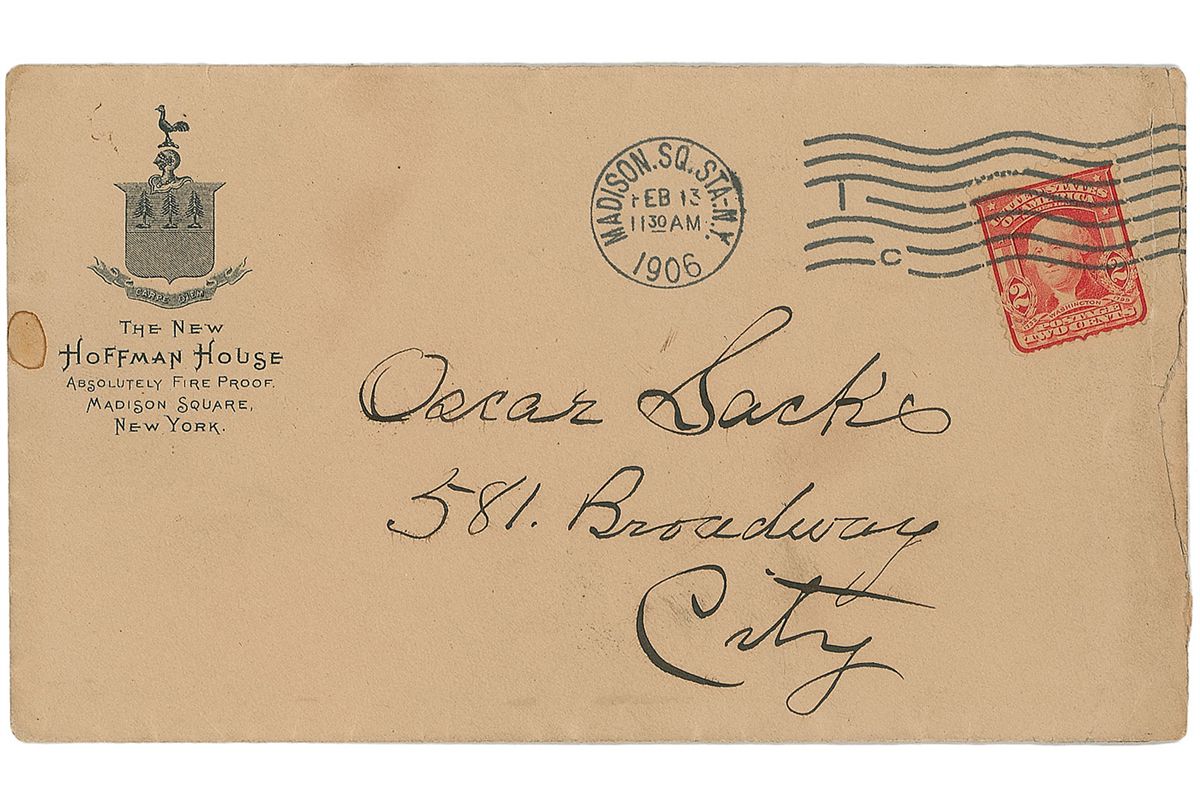 CARPE DIEM
THE NEW
HOFFMAN HOUSE
ABSOLUTELY FIRE PROOF.
MADISON SQUARE,
NEW YORK.
MADISON.SQ.STA-N.Y.
FEB 13
11 30 AM
1906
I
C
UNITED STATES
OF AMERICA
2 2
WASHINGTON
POSTAGE
TWO CENTS
Oscar Sacks
581. Broadway
City